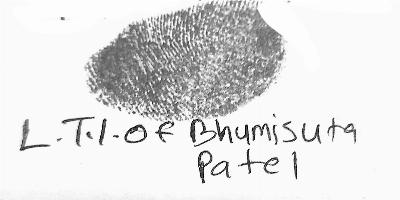 L.T.I. Of Bhumisuta
Patel